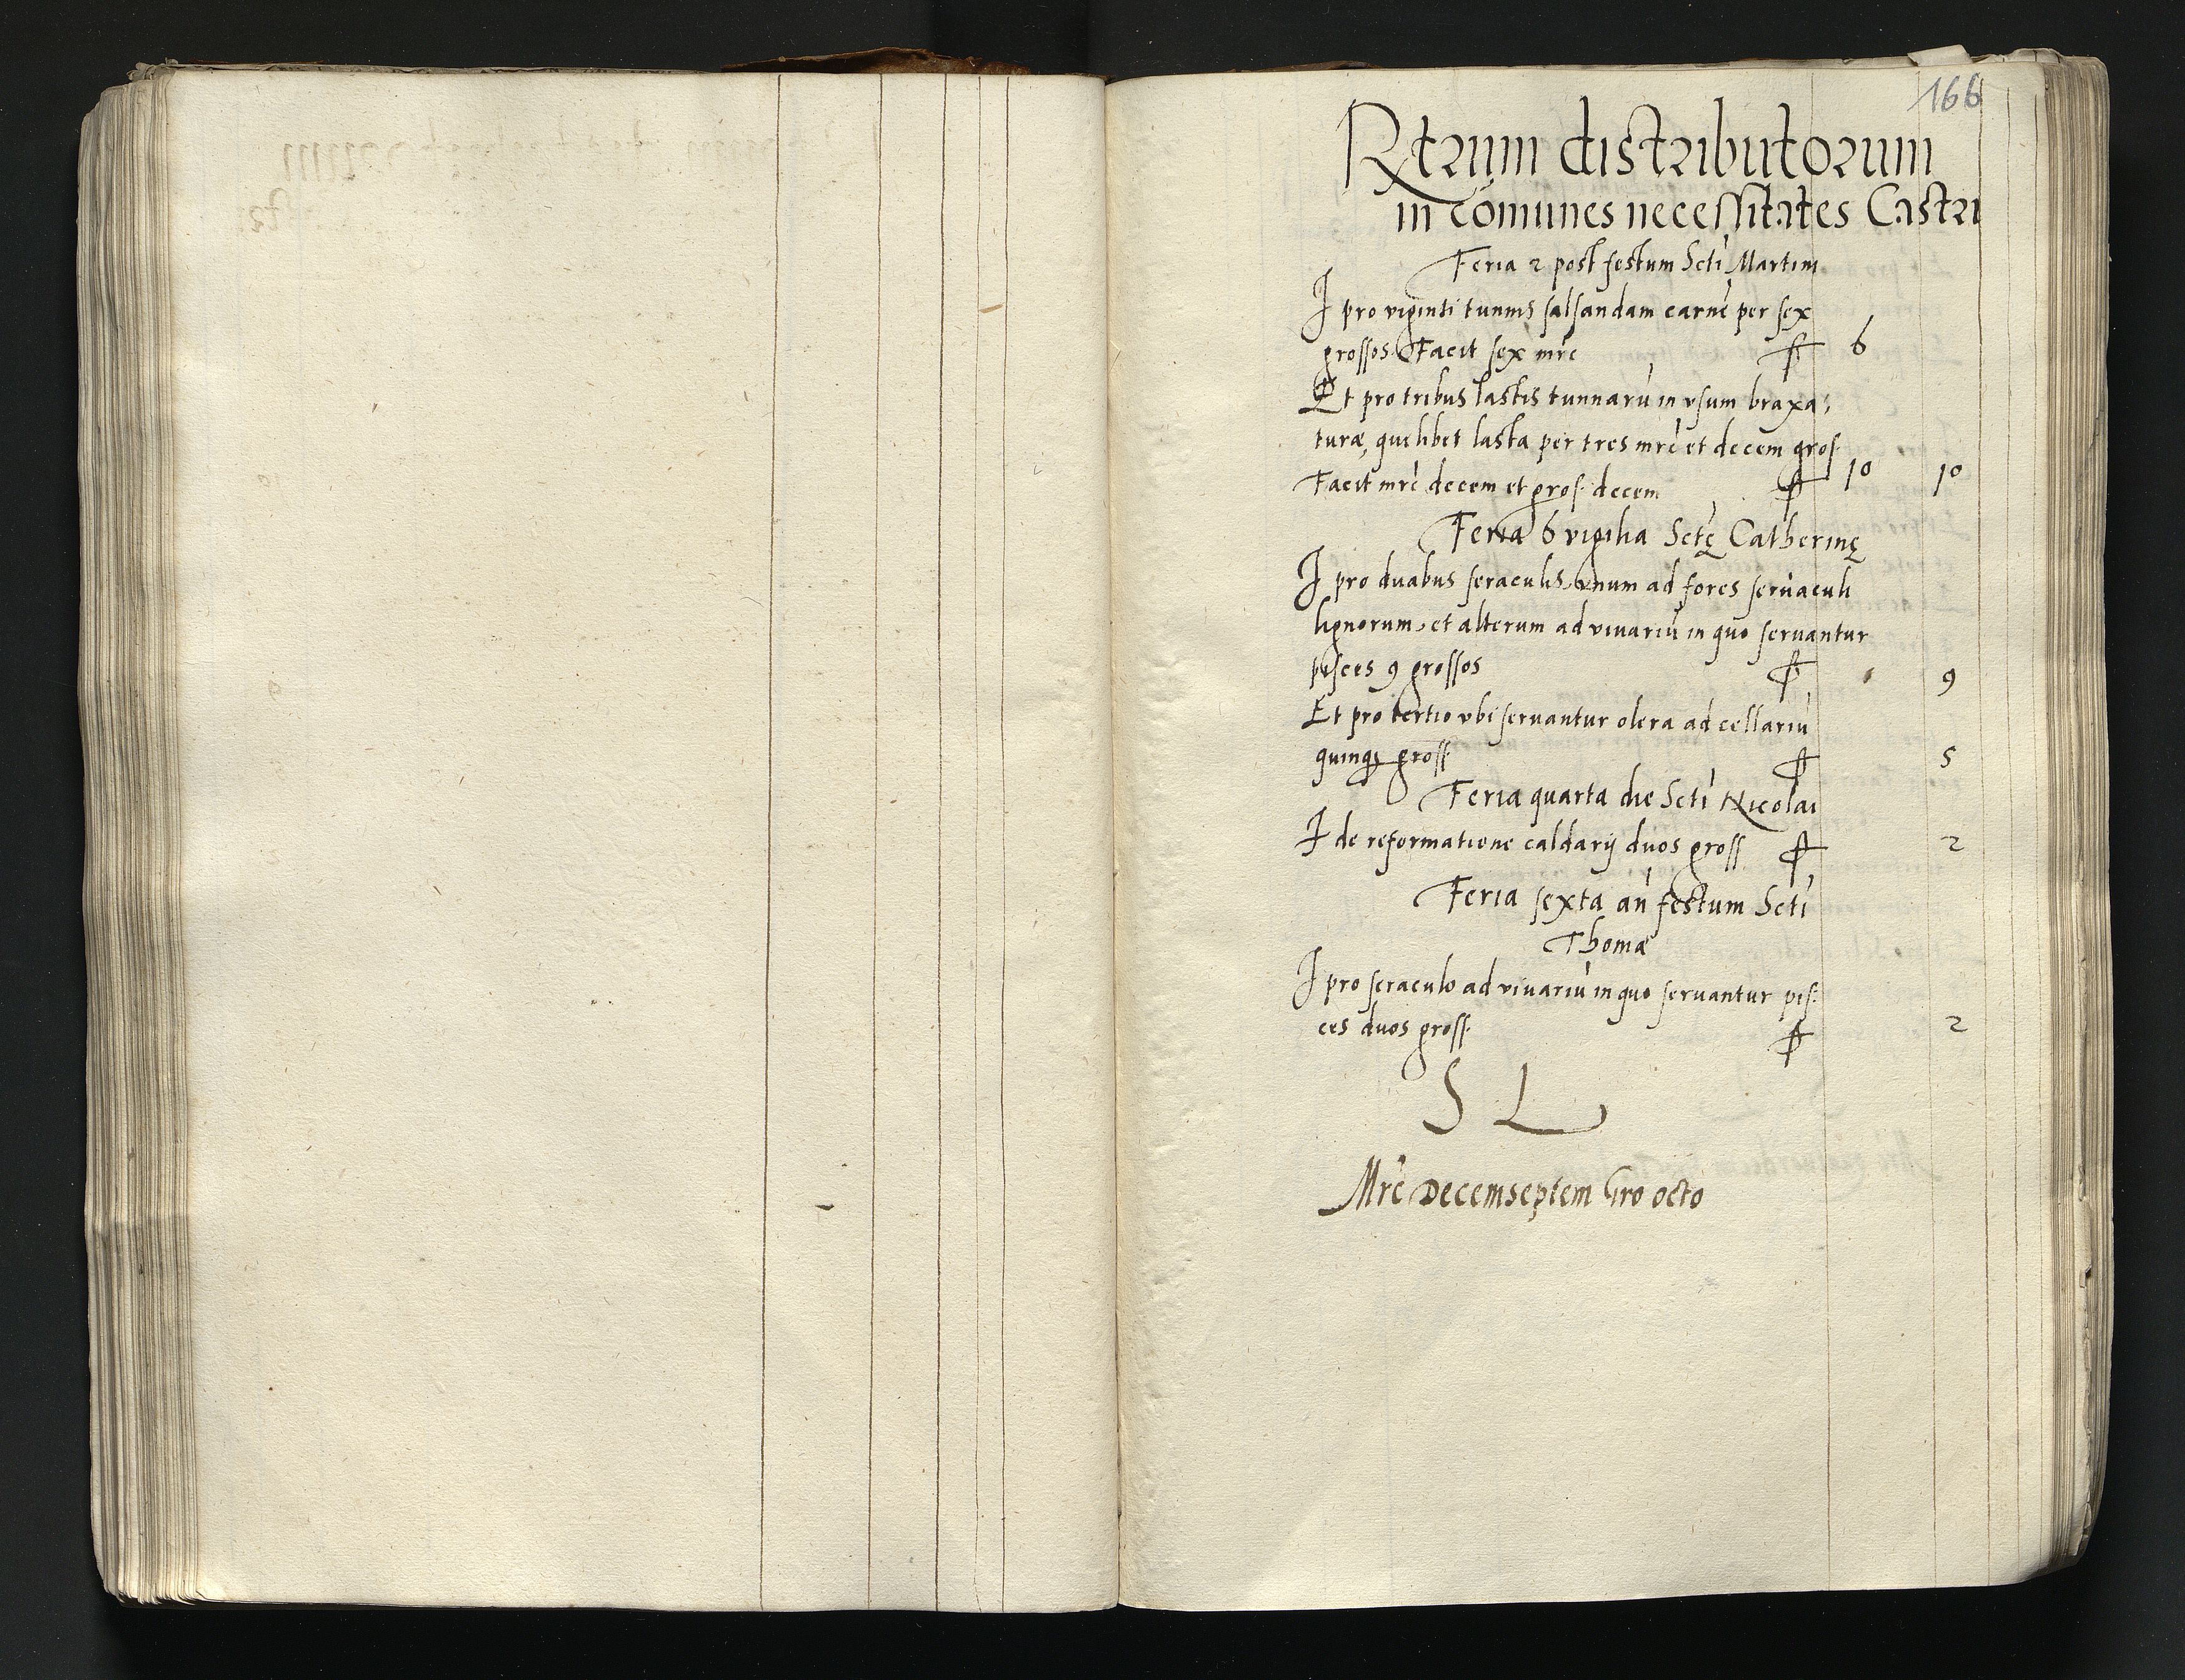 166
Rtrum distributorum
in comunes necessitates Castri
Feria 2 post festum Scti Martini
I pro viginti tunnis salsandam carnē per sex
grossos Facit sex mrc 6
Et pro tribus lastis tunnarū in vsum braxa
turæ, quelibet lasta per tres mrc et decem gros
Facit mrc decem et gros. decem 10 10
Feria 6 vigilia Sctę Catherinę
I pro duabus seraculis, vnum ad fores seruaculi
lignorum, et alterum ad viuariū in quo seruantur
pisces 9 grossos 9
Et pro tertio vbi seruantur olera ad cellariū
quinq gross 5
Feria quarta die Scti Nicolai
I de reformatione caldarij duos gross 2
Feria sexta an festum Scti
Thomæ
I pro seraculo ad viuariū in quo seruantur pis
ces duos gross 2
S L
Mrc Decemseptem Gro octo